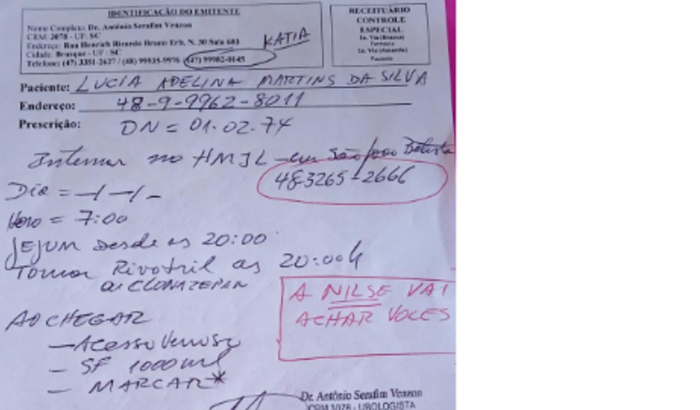 IDENTIFICAÇÃO DO EMITENTE
Nome Completo: Dr. Antônio Serafim Venzon
CRM: 3078 - UF: SC
Endereço: Rua Henrich Ricardo Bruno Erb, N. 30 Sala 603
Cidade: Brusque - UF: SC
Telefone: (47) 3351-2627 / (48) 99935-9976 (47) 99982-0145
KATIA
RECEITUÁRIO
CONTROLE
ESPECIAL
1a. Via (Branca)
Farmácia
2a. Via (Amarela)
Paciente
Paciente: LUCIA ADELINA MARTINS DA SILVA
Endereço: 48-9-9962-8011
Prescrição: DN = 01.02.74
Internar no HMJL em São João Batista
483265-2666
Dia = -/-/-
Hora = 7:00
JEJUM Desde as 20:00
Tomar Rivotril as 20:00h
ou CLONAZEPAN
A NILSE VAI
ACHAR VOCES
AO CHEGAR
- Acesso Venoso
- SF 1000 ml
- MARCAR*
Dr. Antônio Serafim Venzon
CRM 3078 - UROLOGISTA